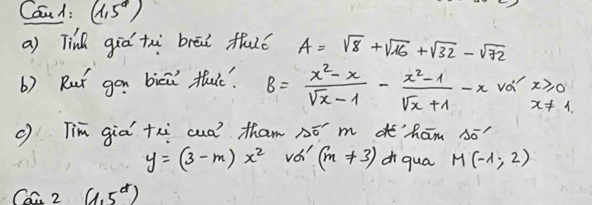 Câu 1: (1,5đ)
a) Tính giá trị biểu thức A = √8 + √16 + √32 - √72
b) Rút gọn biểu thức. B = (x² - x)/(√x - 1) - (x² - 1)/(√x + 1) - x với x ≥ 0 x ≠ 1.
c) Tìm giá trị của tham số m để hàm số
y = (3 - m) x² với (m ≠ 3) đi qua M(-1; 2)
Câu 2 (1,5đ)